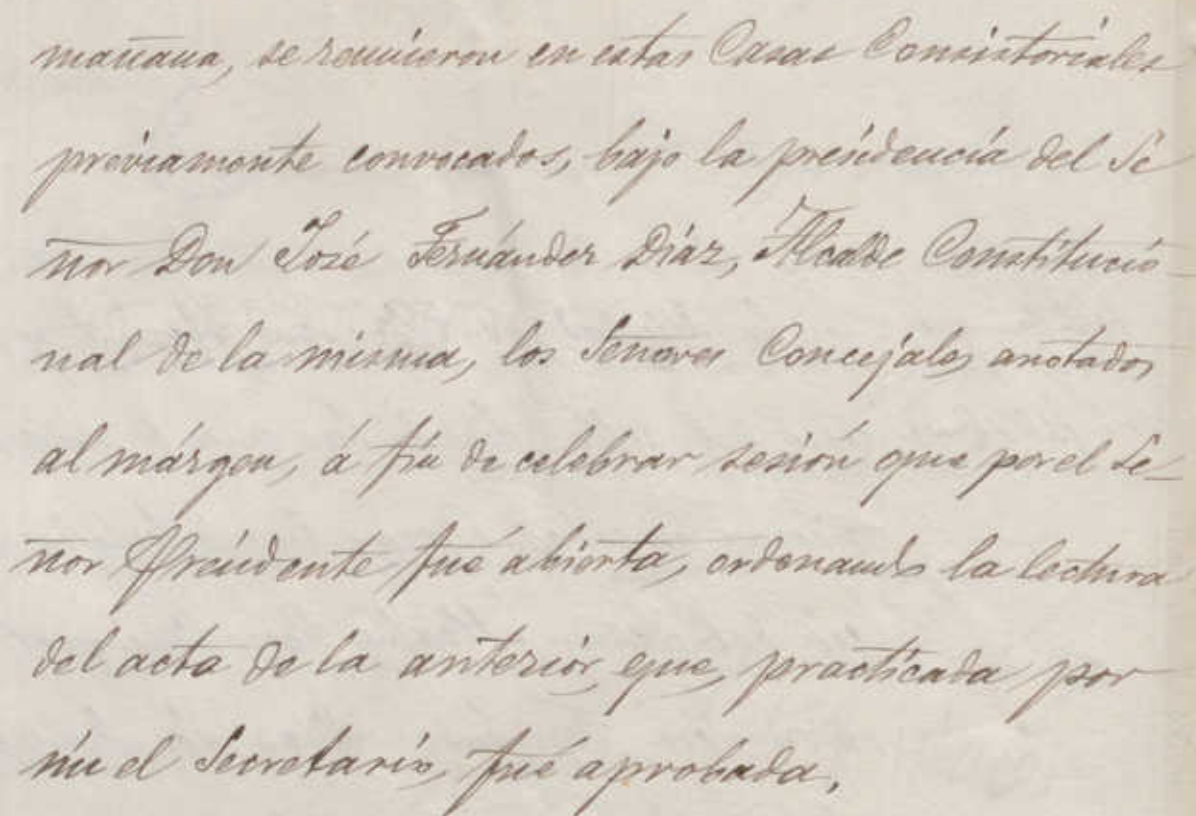 mañana, se reunieron en estas Casas Consistoriales
préviamente convocados, bajo la presidencia del Se
ñor Don José Fernández Díaz, Alcalde Constitució-
nal de la misma, los Señores Concejales anotados
al márgen, á fín de celebrar sesión que por el Se-
ñor Presidente fué abierta, ordenando la lectura
del acta de la anterior, que, practicada por
mi el Secretario, fué aprobada.